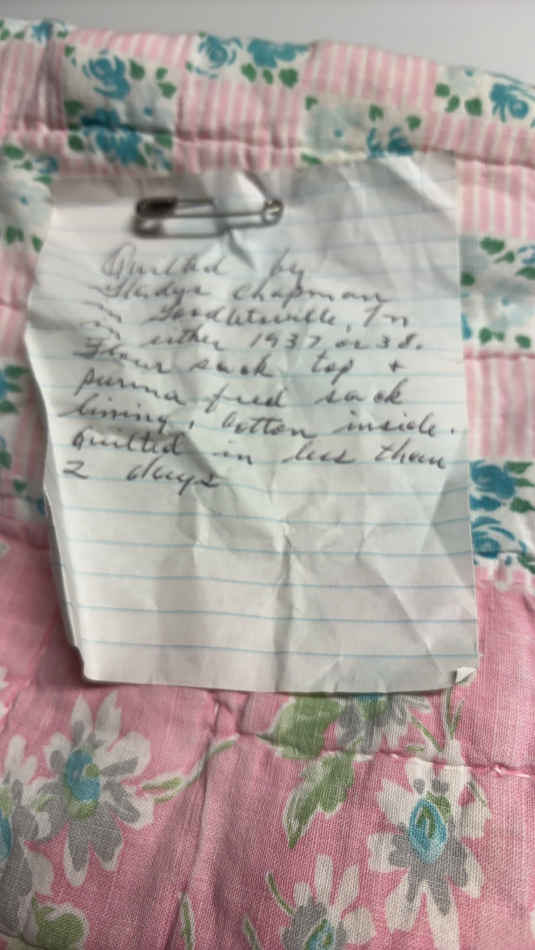 Quilted by
Gladys Chapman
in Goodletsville, Tn
in either 1937 or 38.
Flour sack top +
purina feed sack
lining, cotton inside.
Quilted in less than
2 days